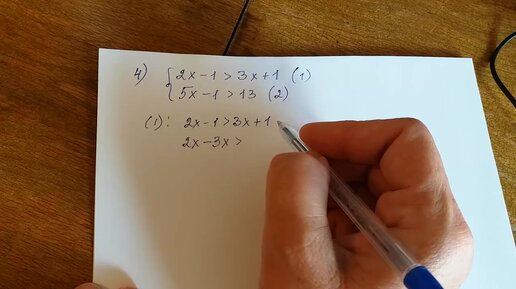 4) { 2x-1>3x+1 (1)
5x-1>13 (2)
(1): 2x-1>3x+1
2x-3x>